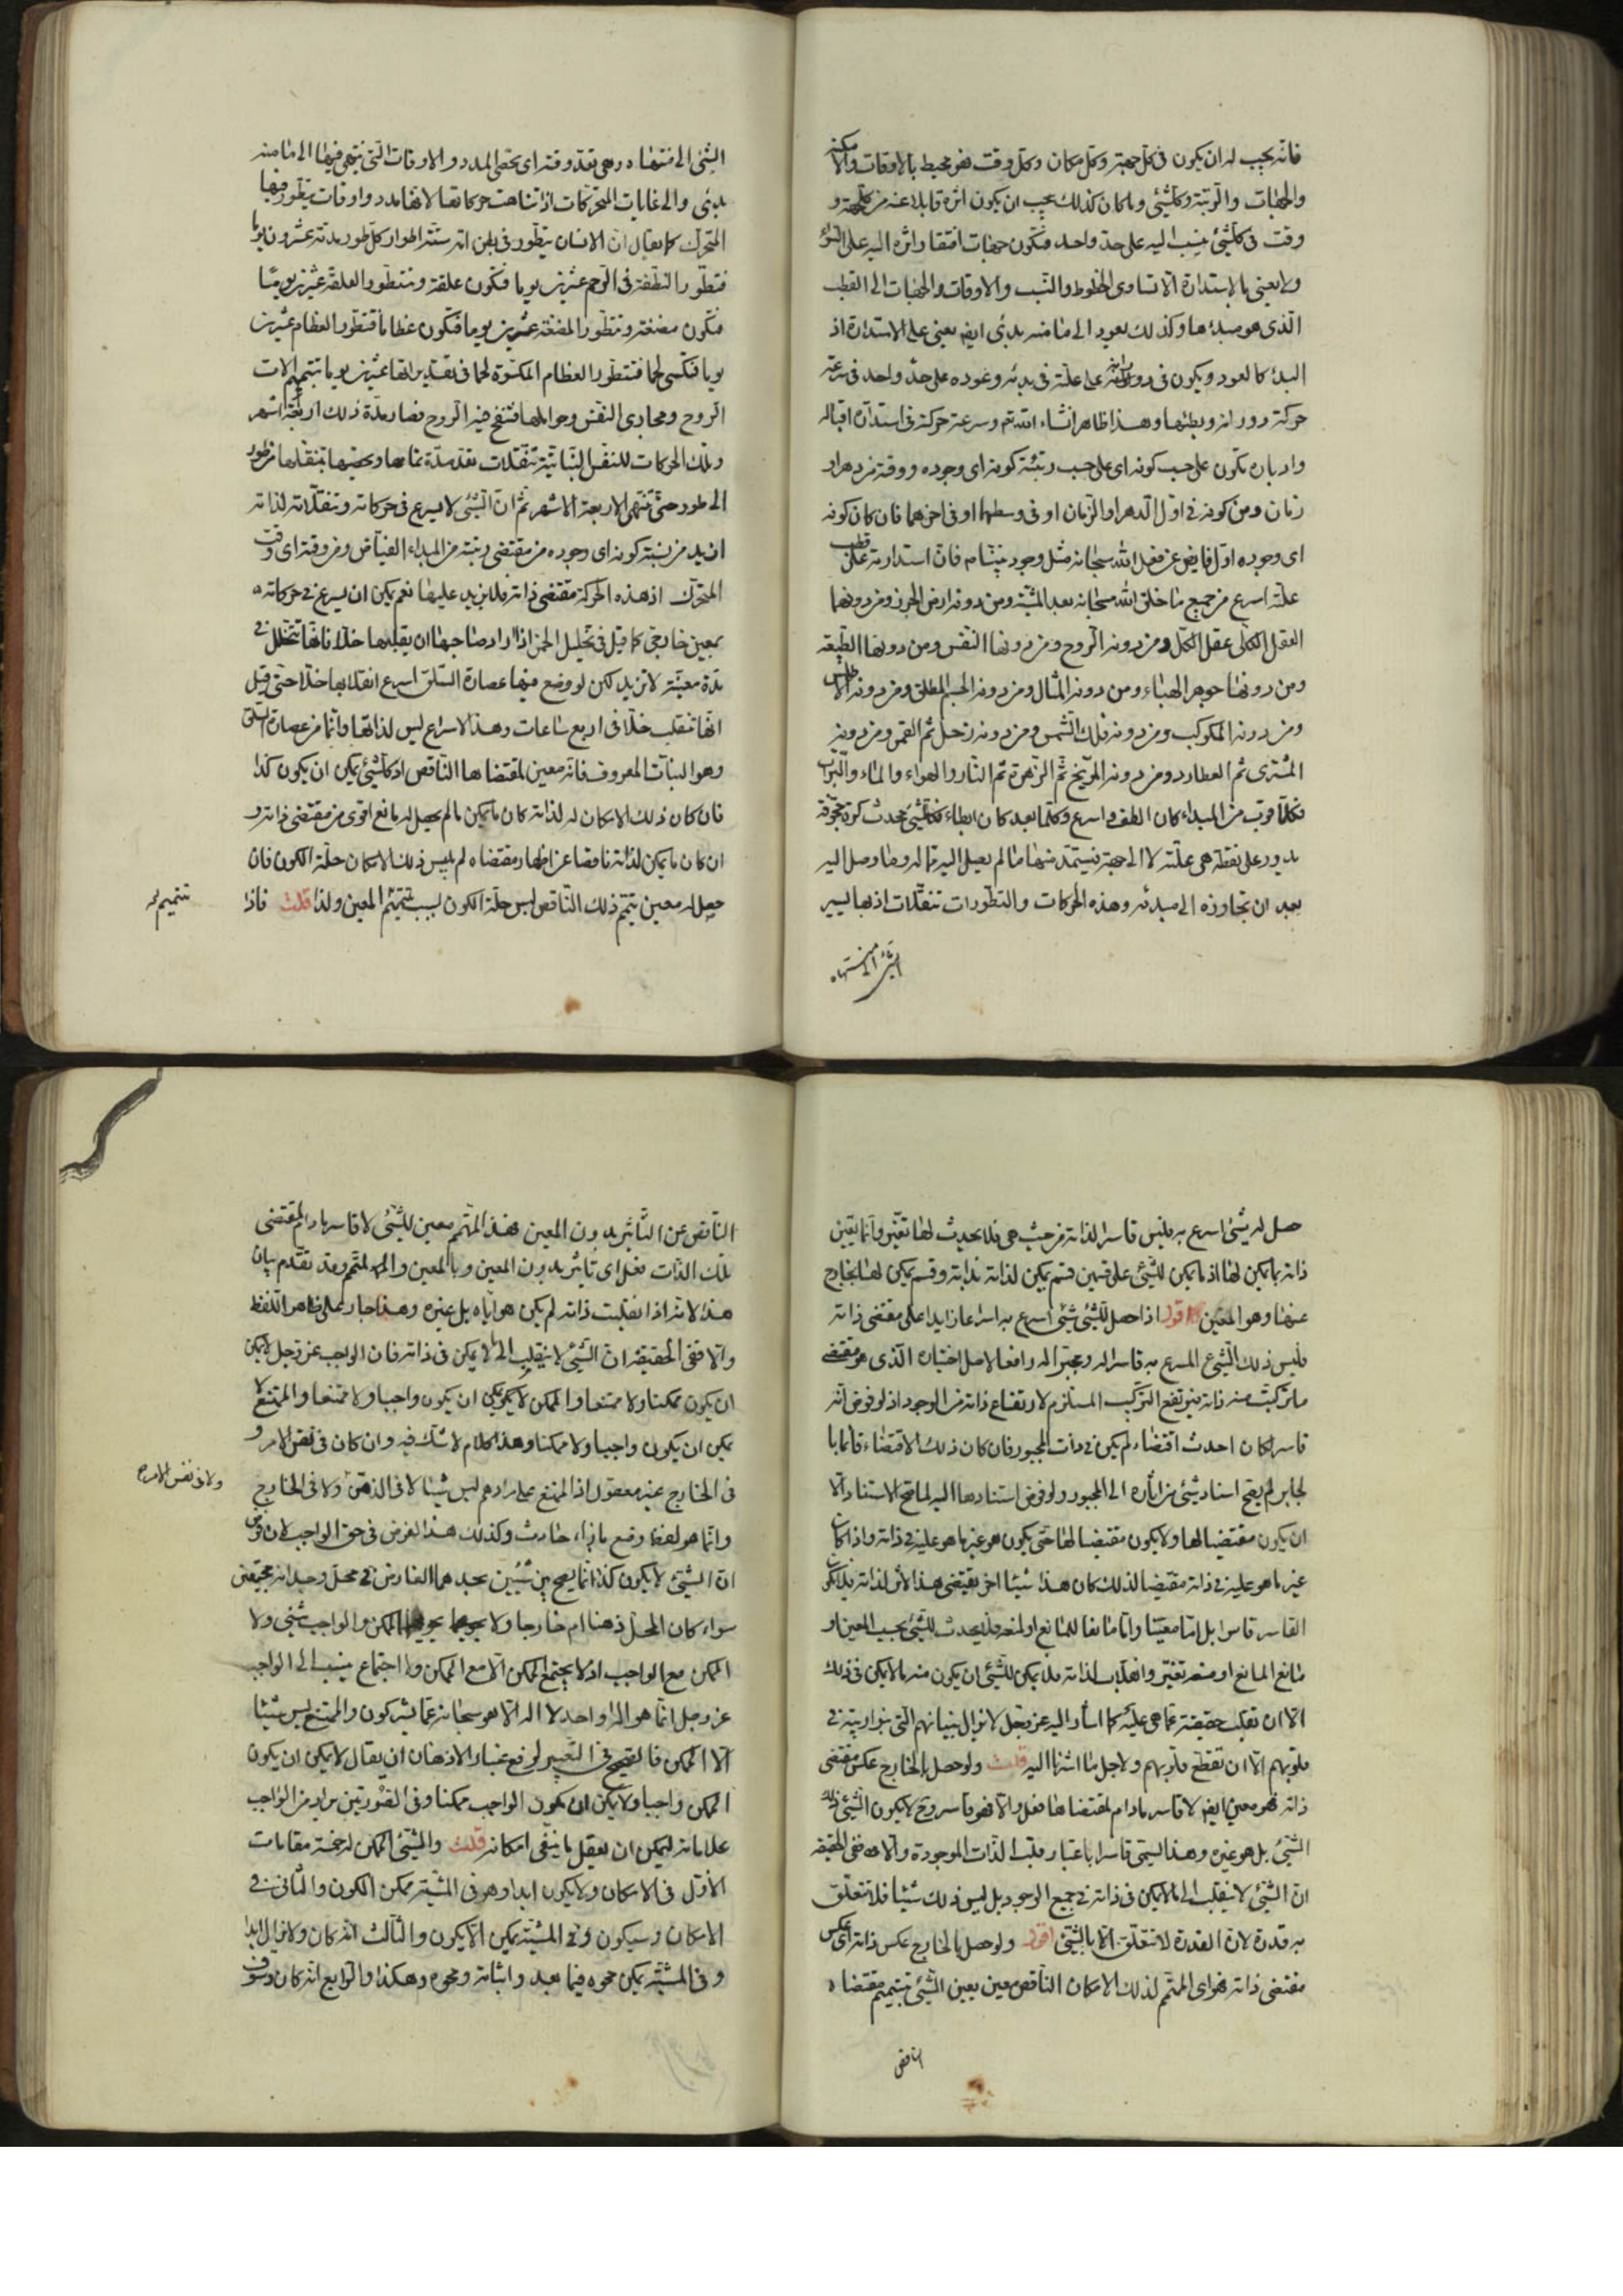 فانه يجب له ان يكون فى كل جهة وكل مكان وكل وقت فهو محيط بالاوقات والامكنة
والجهات والرتبة وكل شئ وما كان كذلك يجب ان يكون اثره قابلا عنه من كل جهة و
وقت فى كل شئ ينسب اليه على حد واحد فتكون جهات افتقار اثره اليه على السواء
ولا يعنى بالاستدارة الا تساوى الخطوط والنسب والاوقات والجهات الى القطب
الذى هو مبدءها وكذلك يعود الى ما منه بدئ ايضا يعنى على الاستدارة اذ
البدء كالعود ويكون فى دورانه على علته فى بدئه وعوده على حد واحد فى سرعة
حركة دورانه وبطئها وهذا ظاهر انشاء الله تم وسرعة حركته فى استدارة اقباله
وادباره تكون على حسب كونه اى على حسب رتبة كونه اى وجوده ووقته من دهر او
زمان ومن كونه فى اول الدهر او الزمان او فى وسطهما او فى اخرهما فان كان كونه
اى وجوده اول فايض عن فعل الله سبحانه مثل وجود نبينا م فان استدارته على قطب
علته اسرع من جميع ما خلق الله سبحانه بعد المشية ومن دونه ارض الجرز ومن دونها
العقل الكلى عقل الكل ومن دونه الروح ومن دونها النفس ومن دونها الطبيعة
ومن دونها جوهر الهباء ومن دونه المثال ومن دونه الجسم المطلق ومن دونه الاطلس
ومن دونه المكوكب ومن دونه فلك الشمس ومن دونه زحل ثم القمر ومن دونه
المشترى ثم العطارد ومن دونه المريخ ثم الزهرة ثم النار والهواء والماء والتراب
فكلما قرب من المبداء كان الطف واسرع وكلما بعد كان ابطاء فكل شئ يحدث كرة مجوفة
يدور على نقطة هى علته لا الى جهة يستمد منها ما لم يصل اليه مما له وما وصل اليه
بعد ان تجاوزه الى مبدئه وهذه الحركات والتطورات تنقلات اذ بها يسير
الشئ الى منتهاه
الشئ الى منتهاه وهى بقدر وقته اى بحصى المدد والاوقات التى ينتهى فيها الى ما منه
بدئ والى غايات المتحركات اذا تناهت حركاتها لانها مدد واوقات يتطور فيها
المتحرك كما يقال ان الانسان يتطور فى بطن امه ستة اطوار كل طور مدته عشرون يوما
فتطور النطفة فى الرحم عشرين يوما فتكون علقة وتتطور العلقة عشرين يوما
فتكون مضغة وتتطور المضغة عشرين يوما فتكون عظاما فتتطور العظام عشرين
يوما فتكسى لحما فتتطور العظام المكسوة لحما فى تقديراتها عشرين يوما بتتميم الات
الروح ومجارى النفس وحواملها فتنفخ فيه الروح فصار مدة ذلك اربعة اشهر
وتلك الحركات للنفس النباتية تنقلات بقدر مدة تمامها وبحسبها بتنقلها من طور
الى طور حتى تنتهى الاربعة الاشهر ثم ان الشئ لا يسرع فى حركاته وتنقلاته لذاته
ازيد من نسبة كونه اى وجوده من مقتضى رتبته من المبداء الفياض ومن وقته اى وقت
المتحرك اذ هذه الحركة مقتضى ذاته فلا يزيد عليها نعم يمكن ان يسرع فى حركاته
بمعين خارجى كما قيل فى تحليل الخمر اذا اراد صاحبها ان يقلبها خلا فانها تتخلل فى
مدة معينة لا تزيد لكن لو وضع فيها عصارة السلق اسرع انقلابها خلا حتى قيل
انها تنقلب خلا فى اربع ساعات وهذا الاسراع ليس لذاتها وانما من عصارة السلق
وهو النبات المعروف فانه معين لمقتضاها الناقص اذ كل شئ يمكن ان يكون كذا
فان كان ذلك الامكان له لذاته كان ما يمكن ما لم يحصل له مانع اقوى من مقتضى ذاته و
ان كان ما يمكن لذاته ناقصا عن اظهار مقتضاه لم يلبس ذلك الامكان حلة الكون فان
حصل له معين يتمم ذلك الناقص لبس حلة الكون بسبب تتميم المعين ولذا قلت فاذا
تتميم له
حصل له شئ اسرع به فليس قاسرا لذاته من حيث هى فلا يحدث لها تغير وانما يعين
ذاته بما يمكن لها اذ ما يمكن للشئ على قسمين قسم يمكن لذاته بذاته وقسم يمكن لها بخارج
عنها وهو المعين اقول اذا حصل للشئ شئ اسرع به اسراعا زايدا على مقتضى ذاته
فليس ذلك الشئ المسرع به قاسرا له ومجبرا له رافعا لاصل اختياره الذى هو مقتضى
ما تركبت منه ذاته فيرتفع التركيب المستلزم لارتفاع ذاته من الوجود اذ لو فرض انه
قاسر لكان احدث اقتضاء لم يكن فى ذات المجبور فان كان ذلك الاقتضاء قائما با
لجابر لم يصح اسناد شئ من آثاره الى المجبور ولو فرض استنادها اليه لما صح الاستناد الا
ان يكون مقتضيا لها ولا يكون مقتضيا لها حتى يكون هو غير ما هو عليه فى ذاته واذا كان
غير ما هو عليه فى ذاته مقتضيا لذلك كان هذا شيئا اخر يقتضى هذا الاثر لذاته فلا يكون
القاسر قاسرا بل اما معينا واما مانعا للمانع او لمنعه فلا يحدث للشئ بحسب المعين او
مانع المانع او منعه تغير وانقلاب لذاته فلا يمكن للشئ ان يكون منه ما لا يمكن فى ذلك
الا ان تقلب حقيقته عما هى عليه كما اشار اليه عز وجل لا يزال بنيانهم الذى بنوا ريبة فى
قلوبهم الا ان تقطع قلوبهم ولاجل ما اشرنا اليه قلت ولو حصل بالخارج عكس مقتضى
ذاته فهو معين ايضا لا قاسر ما دام لمقتضاها فعل والا فهو قاسر وح لا يكون الشئ ذلك
الشئ بل هو غيره وهذا ليسمى قاسرا باعتبار قلب الذات الموجودة والا ففى الحقيقة
ان الشئ لا ينقلب الى ما لا يمكن فى ذاته فى جميع الوجود بل ليس ذلك شيئا فلا تتعلق
به قدرة لان القدرة لا تتعلق الا بالشئ اقول ولو حصل بالخارج عكس ذاته اى عكس
مقتضى ذاته فهو اى المتمم لذلك الامكان الناقص معين يعين الشئ بتتميم مقتضاه
الناقص
الناقص عن التأثير بدون المعين فهذا المتمم معين للشئ لا قاسر ما دام لمقتضى
تلك الذات فعل اى تأثير بدون المعين وبالمعين والمتمم وقد تقدم بيان
هذا لانه اذا انقلبت ذاته لم يكن هو اياه بل غيره وهذا جار على ظاهر اللفظ
والا ففى الحقيقة ان الشئ لا ينقلب الى ما لا يمكن فى ذاته فان الواجب عز وجل لا يمكن
ان يكون ممكنا ولا ممتنعا والممكن لا يمكن ان يكون واجبا ولا ممتنعا والممتنع لا
يمكن ان يكون واجبا ولا ممكنا وهذا كلام لا شك فيه وان كان فى نفس الامر و
فى الخارج غير معقول اذ الممتنع على مرادهم ليس شيئا لا فى الذهن ولا فى الخارج
ولا فى نفس الامر
وانما هو لفظ وضع بازاء حادث وكذلك هذا الفرض فى حق الواجب لان فرض
ان الشئ لا يكون كذا انما يصح بين شيئين يجدهما الفارض فى محل وجدانه بحقيقتى
سواء كان المحل ذهنا ام خارجا ولا يحويها الممكن والواجب شئ ولا
الممكن مع الواجب اذ لا يجتمع الممكن الا مع الممكن ولا اجتماع ينسب الى الواجب
عز وجل انما هو اله واحد لا اله الا هو سبحانه عما يشركون والممتنع ليس شيئا
الا الممكن فالتصحيح فى التعبير لرفع غبار الاذهان ان يقال لا يمكن ان يكون
الممكن واجبا ولا يمكن ان يكون الواجب ممكنا وفى الصورتين يراد من الواجب
علاماته ليمكن ان يعقل ما ينفى امكانه قلت والشئ الممكن له خمسة مقامات
الاول فى الامكان ولا يكون ابدا وهو فى المشية ممكن الكون والثانى فى
الامكان وسيكون وفى المشية يمكن الا يكون والثالث انه كان ولا يزال ابدا
وفى المشية يمكن محوه فيما بعد واثباته ومحوه وهكذا والرابع انه كان وسوف